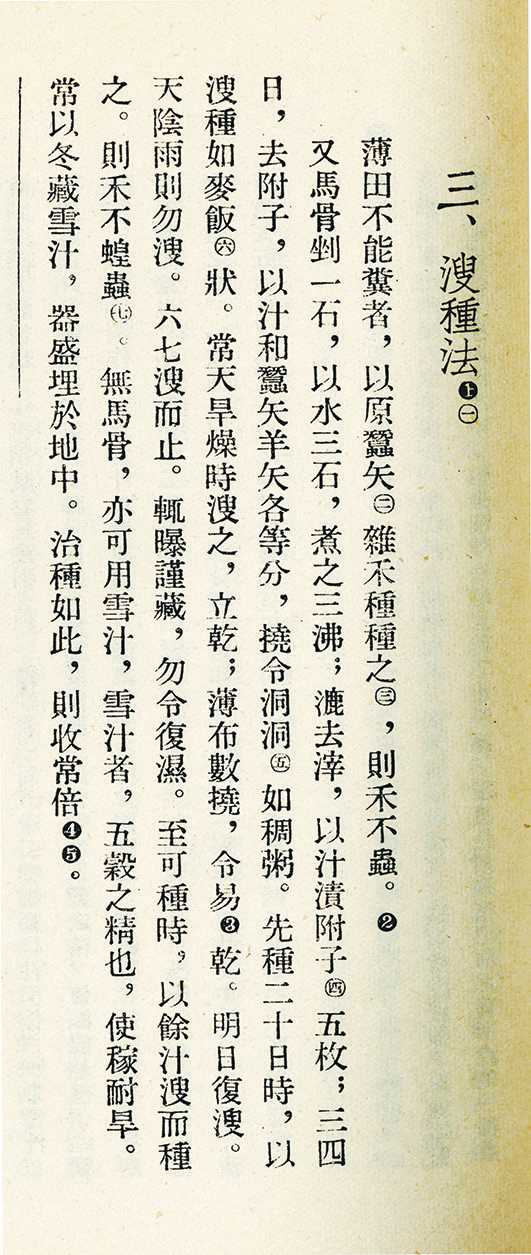 三、溲種法❶㊀
薄田不能糞者，以原蠶矢㊁雜禾種種之㊂，則禾不蟲。❷
又馬骨剉一石，以水三石，煮之三沸；漉去滓，以汁漬附子㊃五枚；三四
日，去附子，以汁和蠶矢羊矢各等分，撓令洞洞㊄如稠粥。先種二十日時，以
溲種如麥飯㊅狀。常天旱燥時溲之，立乾；薄布數撓，令易❸乾。明日復溲。
天陰雨則勿溲。六七溲而止。輒曝謹藏，勿令復濕。至可種時，以餘汁溲而種
之。則禾不蝗蟲㊆。無馬骨，亦可用雪汁，雪汁者，五穀之精也，使稼耐旱。
常以冬藏雪汁，器盛埋於地中。治種如此，則收常倍❹❺。